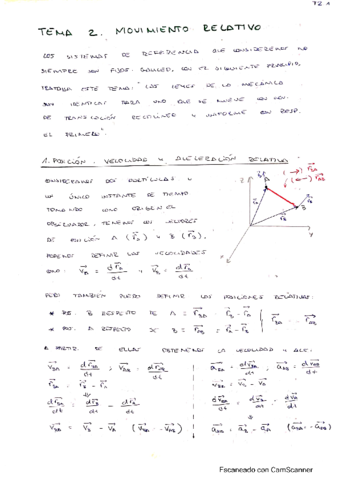 T2 1
TEMA 2. MOVIMIENTO RELATIVO
LOS SISTEMAS DE REFERENCIA QUE CONSIDEREMOS NO
SIEMPRE SON FIJOS. GALILEO, CON EL SIGUIENTE PRINCIPIO,
TRATABA ESTE TEMA: LAS LEYES DE LA MECÁNICA
SON IDÉNTICAS PARA UNO QUE SE MUEVE CON MOV.
DE TRASLACIÓN RECTILÍNEO Y UNIFORME CON RESP.
EL PRIMERO.
1. POSICIÓN, VELOCIDAD Y ACELERACIÓN RELATIVA
CONSIDERAMOS DOS PARTÍCULAS Y
UN ÚNICO INSTANTE DE TIEMPO
TOMANDO COMO ORIGEN EL
OBSERVADOR, TENEMOS UN VECTORES
DE POSICIÓN A (r⃗A) Y B (r⃗B),
PODEMOS DEFINIR LAS VELOCIDADES
COMO: v⃗A = dr⃗A/dt Y v⃗B = dr⃗B/dt
PERO TAMBIÉN PUEDO DEFINIR LAS POSICIONES RELATIVAS:
* POS. B RESPECTO DE A = r⃗BA = r⃗B - r⃗A
* POS. A RESPECTO DE B = r⃗AB = r⃗A - r⃗B
r⃗BA = - r⃗AB
A PARTIR DE ELLAS OBTENEMOS LA VELOCIDAD Y ACE.
v⃗BA = dr⃗BA/dt ; v⃗AB = dr⃗AB/dt
r⃗BA = r⃗B - r⃗A
dr⃗BA/dt = dr⃗B/dt - dr⃗A/dt
v⃗BA = v⃗B - v⃗A (v⃗BA = -v⃗AB)
a⃗BA = dv⃗BA/dt ; a⃗AB = dv⃗AB/dt
v⃗BA = v⃗B - v⃗A
dv⃗BA/dt = dv⃗B/dt - dv⃗A/dt
a⃗BA = a⃗B - a⃗A (a⃗BA = -a⃗AB)
Escaneado con CamScanner